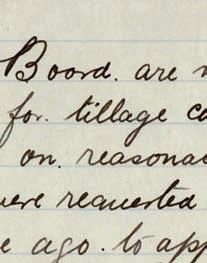 Board. are
for. tillage
on. reasona
were requested
ago. to app